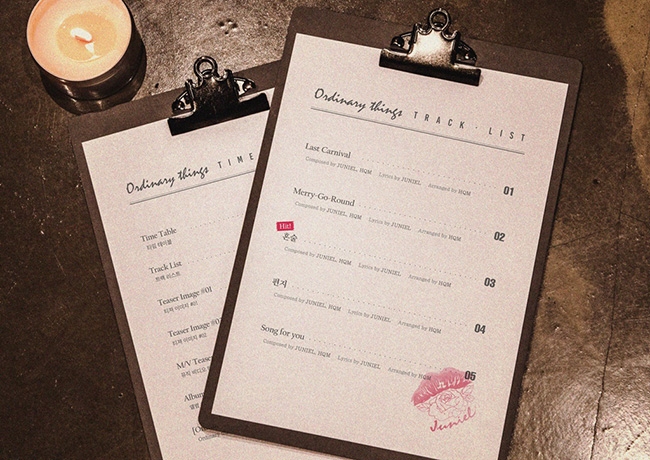 Ordinary things TIME
Time Table
타임 테이블
Track List
트랙 리스트
Teaser Image #01
티저 이미지 #01
Teaser Image
티저 이미지
M/V Teaser
뮤직 비디오
Album
앨범
Ordinary things TRACK . LIST
Last Carnival 01
Composed by JUNIEL, HQM Lyrics by JUNIEL Arranged by HQM
Merry-Go-Round 02
Composed by JUNIEL, HQM Lyrics by JUNIEL Arranged by HQM
Hit!
혼술 03
Composed by JUNIEL, HQM Lyrics by JUNIEL Arranged by HQM
편지 04
Composed by JUNIEL, HQM Lyrics by JUNIEL Arranged by HQM
Song for you 05
Composed by JUNIEL, HQM Lyrics by JUNIEL Arranged by HQM
Juniel